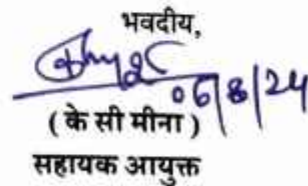 भवदीय,
06/8/24
( के सी मीना )
सहायक आयुक्त